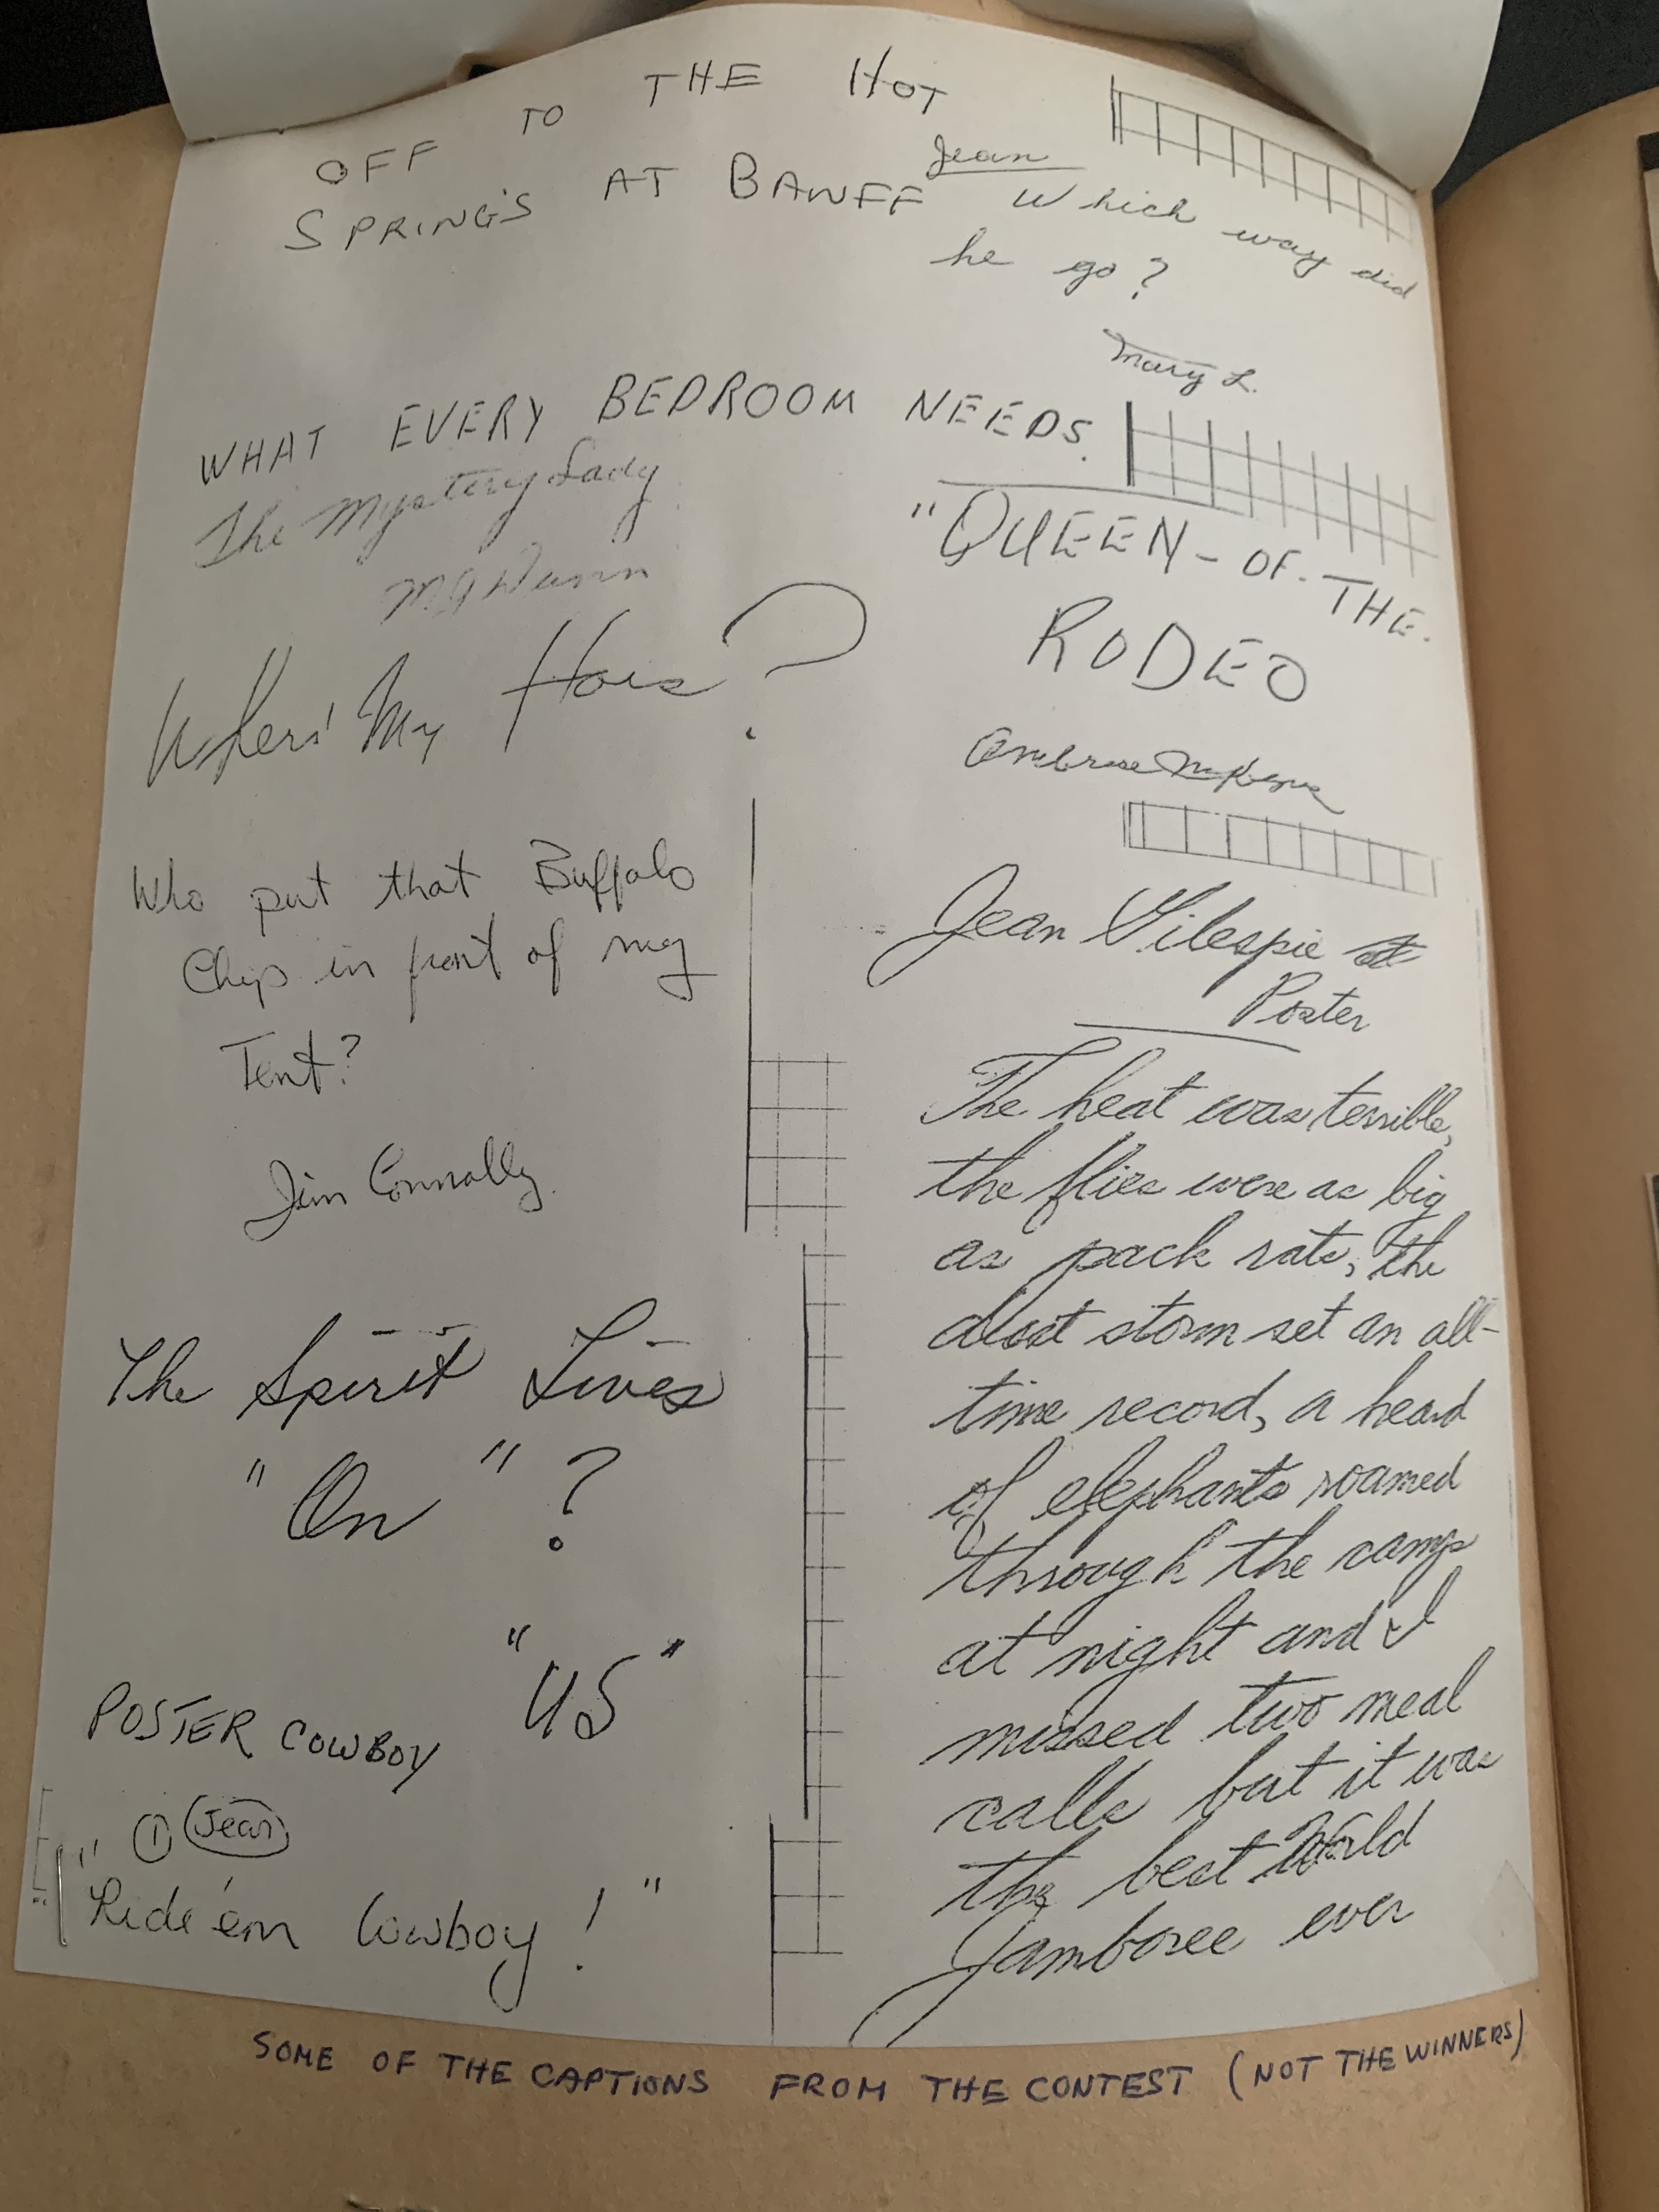 OFF TO THE HOT
SPRING'S AT BANFF
WHAT EVERY BEDROOM NEEDS.
The Mystery Lady
Dunn
Where' My Hors?
Who put that Buffalo
Chip in front of my
Tent?
Jim Connally
The Spirit Lives
"On" ?
"US"
POSTER COWBOY
① Jean
"Ride 'em Cowboy!"
Jean
Which way did
he go?
Mary L.
"QUEEN-OF-THE-
RODEO
Ambrose
Jean Gilespie
Poster
The heat was terrible,
the flies were as big
as pack rats, the
dust storm set an all-
time record, a heard
of elephants roamed
through the camp
at night and I
missed two meal
calls but it was
the best World
Jamboree ever
SOME OF THE CAPTIONS FROM THE CONTEST (NOT THE WINNERS)